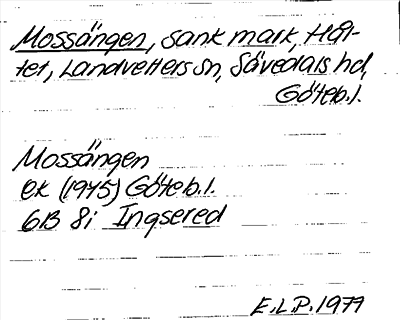 Mossängen, sank mark, Hål-
tet, Landvetters sn, Sävedals hd,
Göteb.l.
Mossängen
ek (1975) Göteb.l.
6B 8i Ingsered
E.L.P. 1977